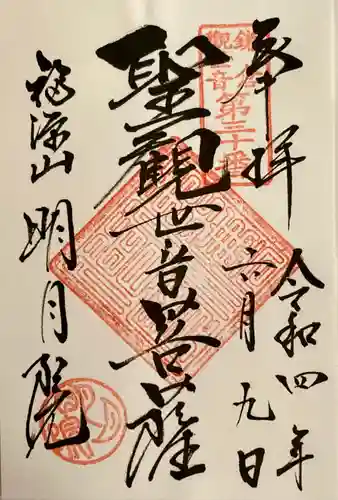 奉拝
令和四年
六月九日
鎌倉観音第三十番
聖觀世音菩薩
福源山
明月院